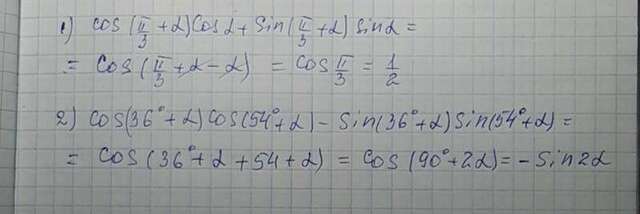 1) cos(π/3 + α)cosα + sin(π/3 + α) sinα =
= cos(π/3 + α - α) = cos π/3 = 1/2
2) cos(36° + α)cos(54° + α) - sin(36° + α)sin(54° + α) =
= cos(36° + α + 54 + α) = cos(90° + 2α) = - sin2α